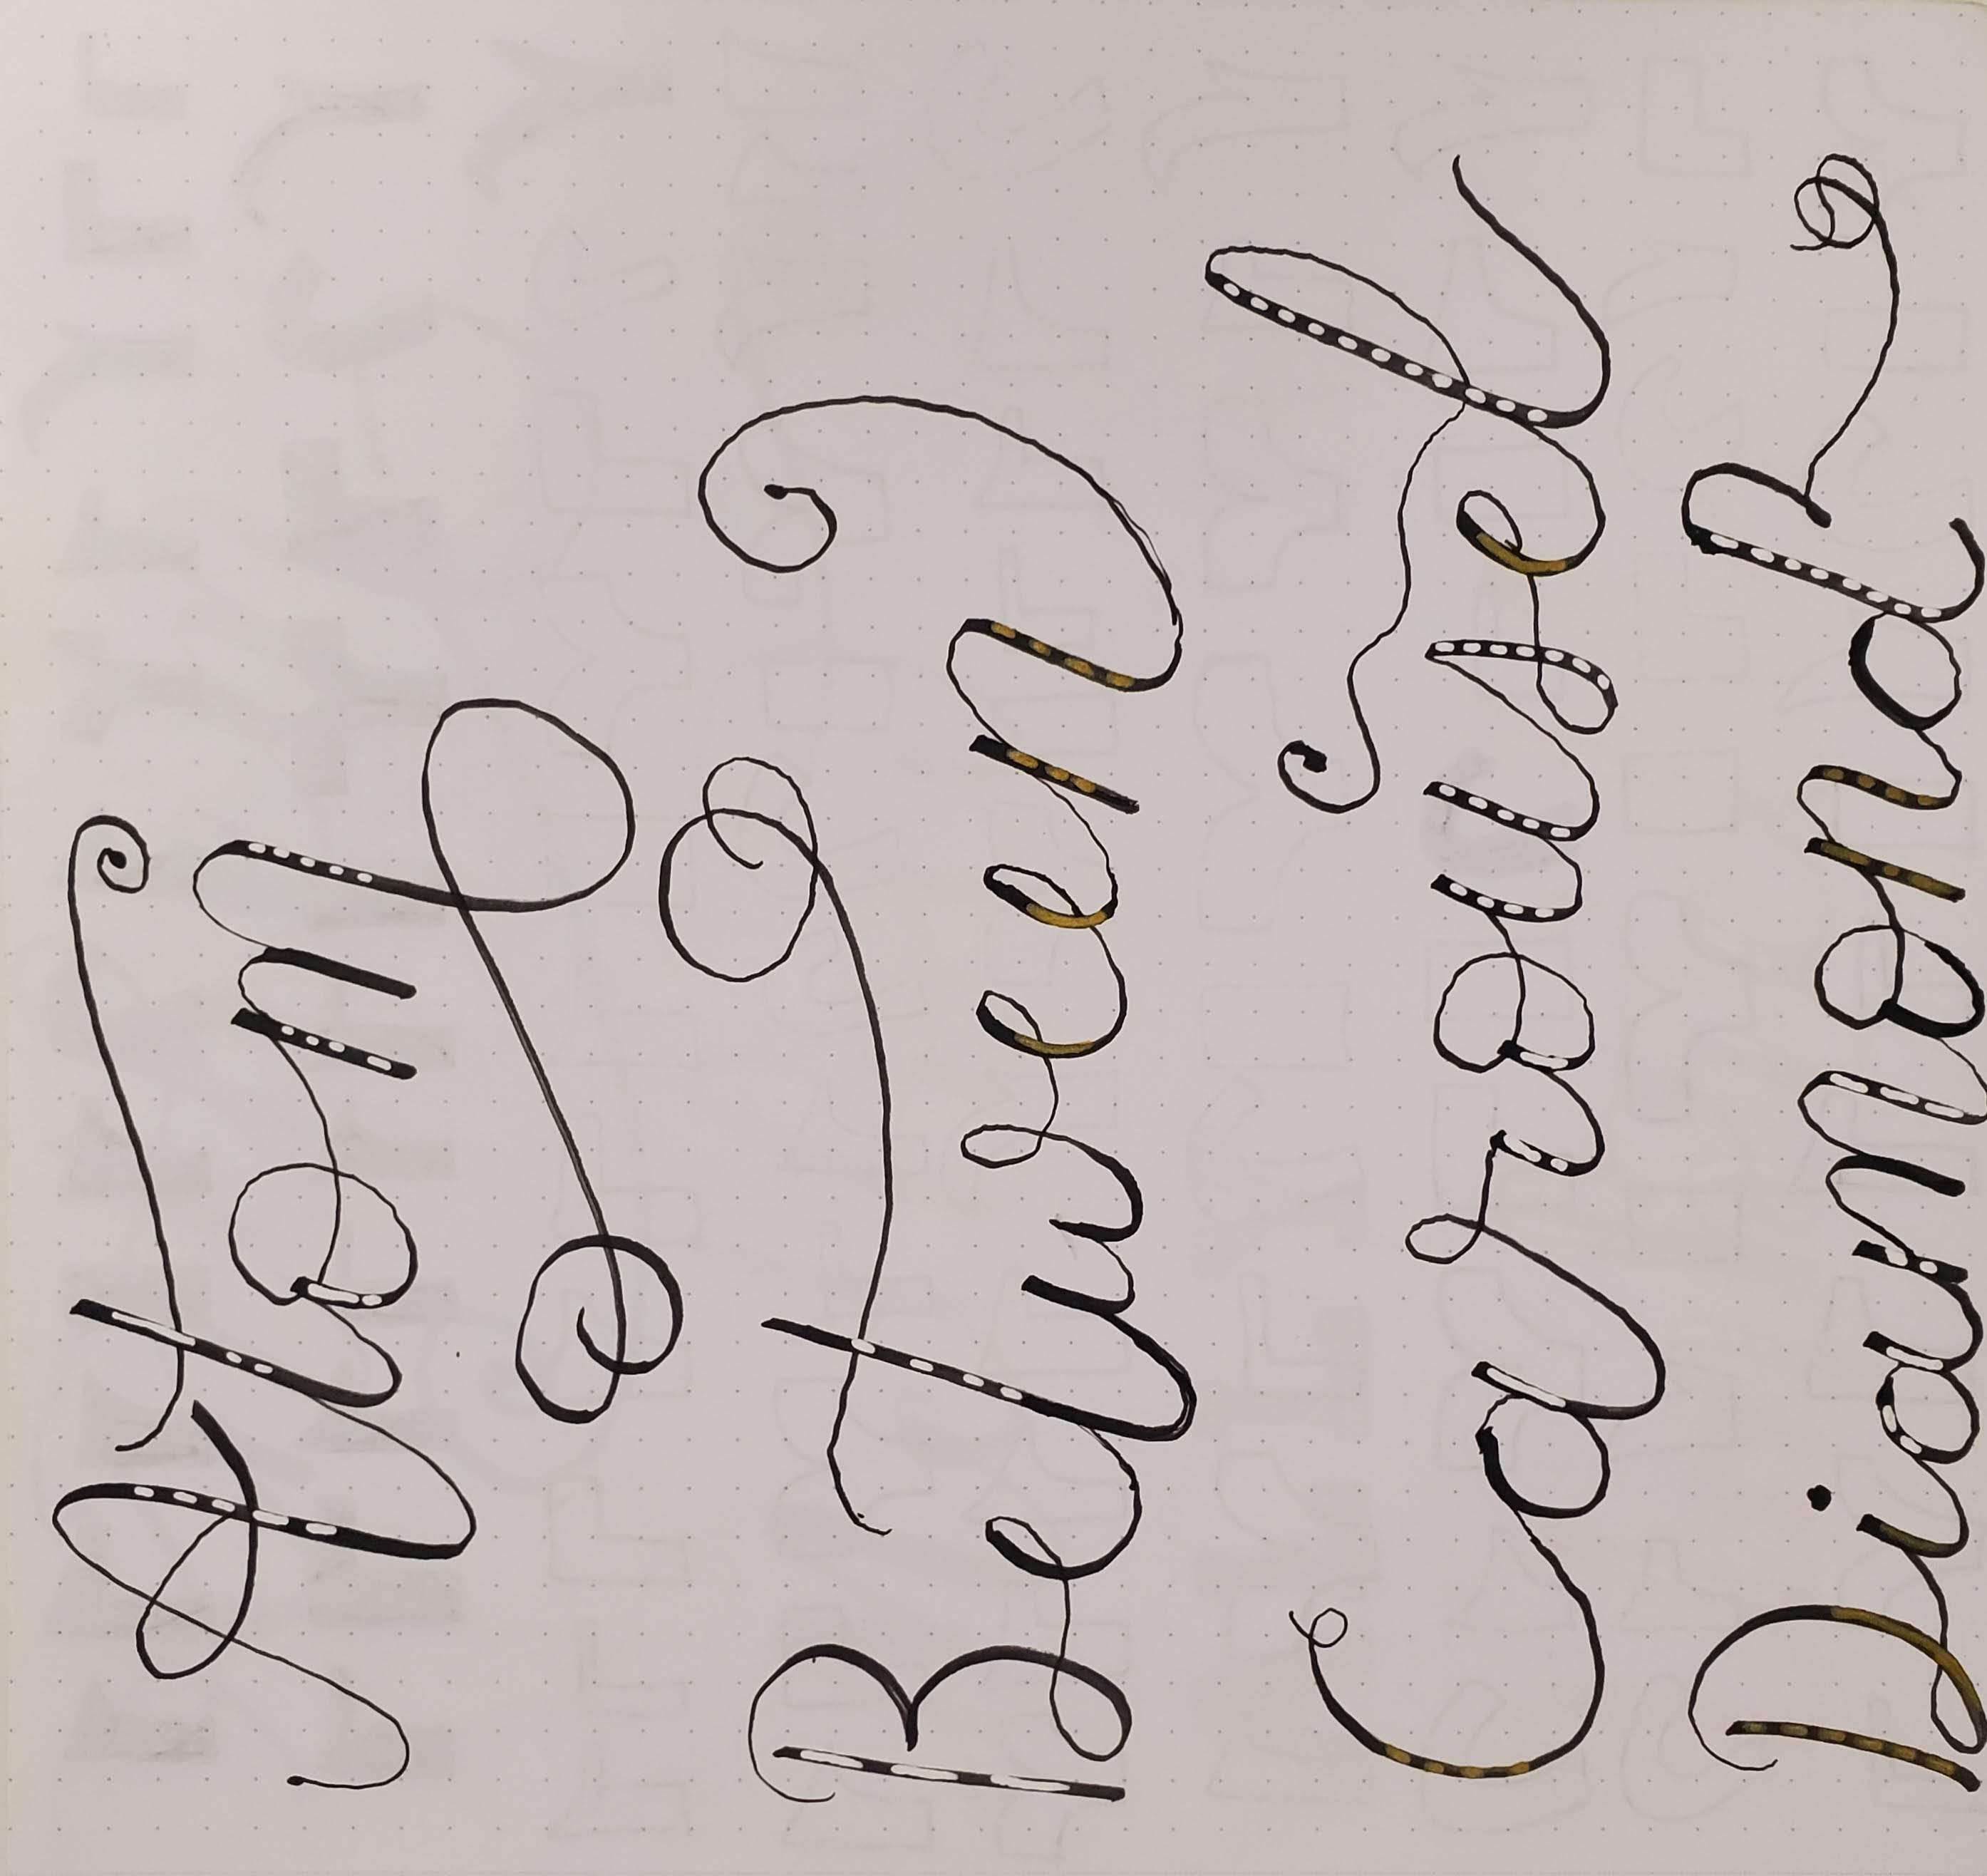 Atom
Between
Carousel
Diamond